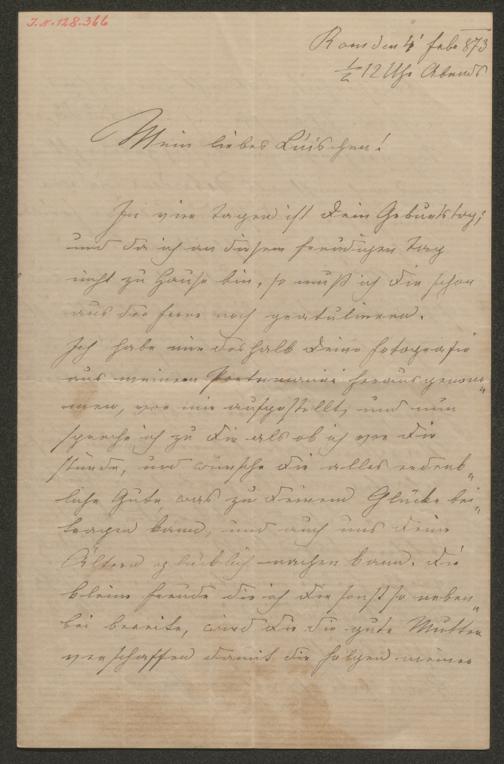 I.N. 128.366
Rom den 4 feb. 873
½ 12 Uhr Abends
Mein liebes Luischen!
In vier tagen ist dein Geburtstag;
und da ich an diesem freudigen tag
nicht zu Hause bin, so muß ich dir schon
aus der ferne noch gratulieren.
Ich habe mir deshalb deine fotografie
aus meinem Portemonnai herausgenom„
men, vor mir aufgestellt, und nun
spreche ich zu dir als ob ich vor dir
stünde, und wünsche dir alles erdenk„
liche Gute, was zu deinem Glücke bei„
tragen kann, und auch uns deine
Ältern glücklich machen kann. die
kleine freude die ich dir sonst so neben„
bei bereite, wird dir die gute Mutter
verschaffen damit die folgen meiner